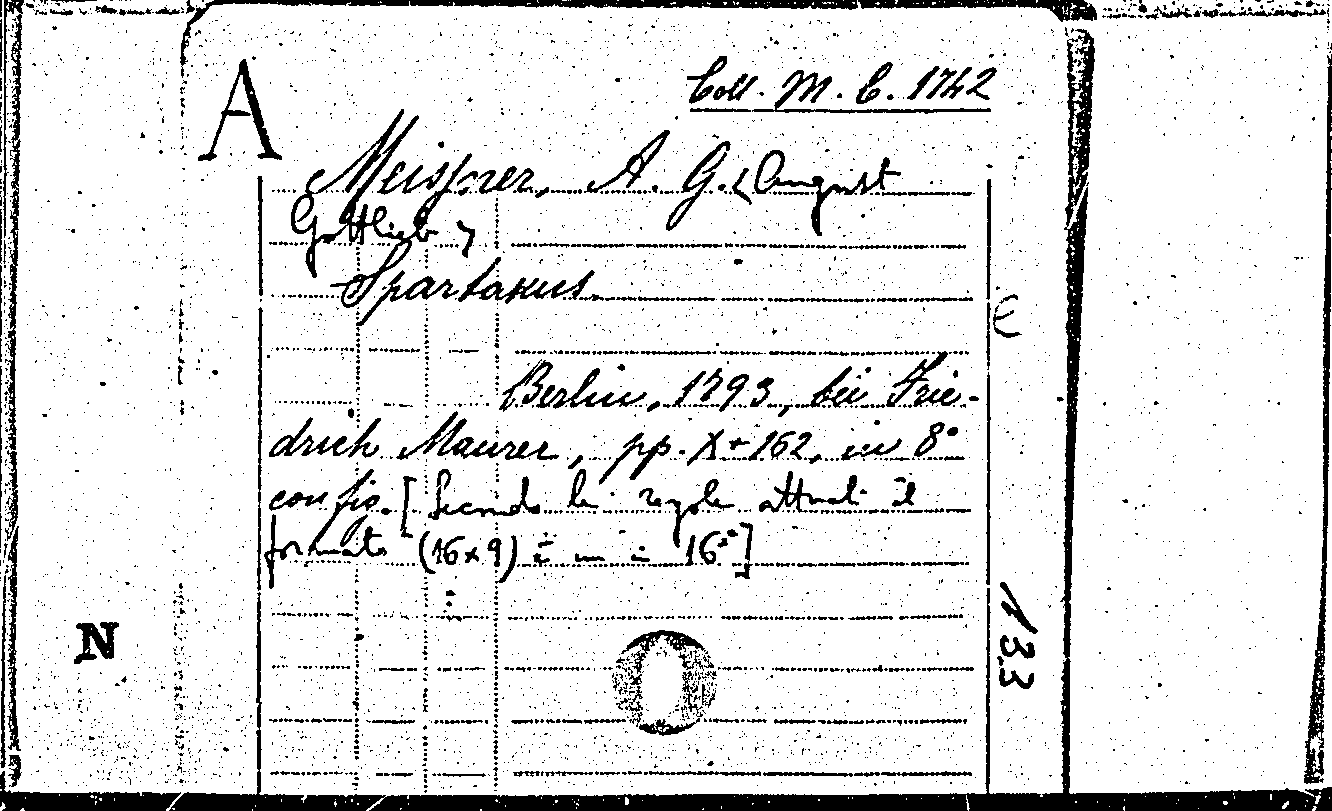 A
Coll. M. C. 1742
Meissner, A. G. <August
Gottlieb>
Spartakus.
E
Berlin, 1793, bei Frie-
drich Maurer, pp. X+162, in 8°
con fig. [Secondo le regole attuali il
formato (16x9) è un in 16°]
N
133